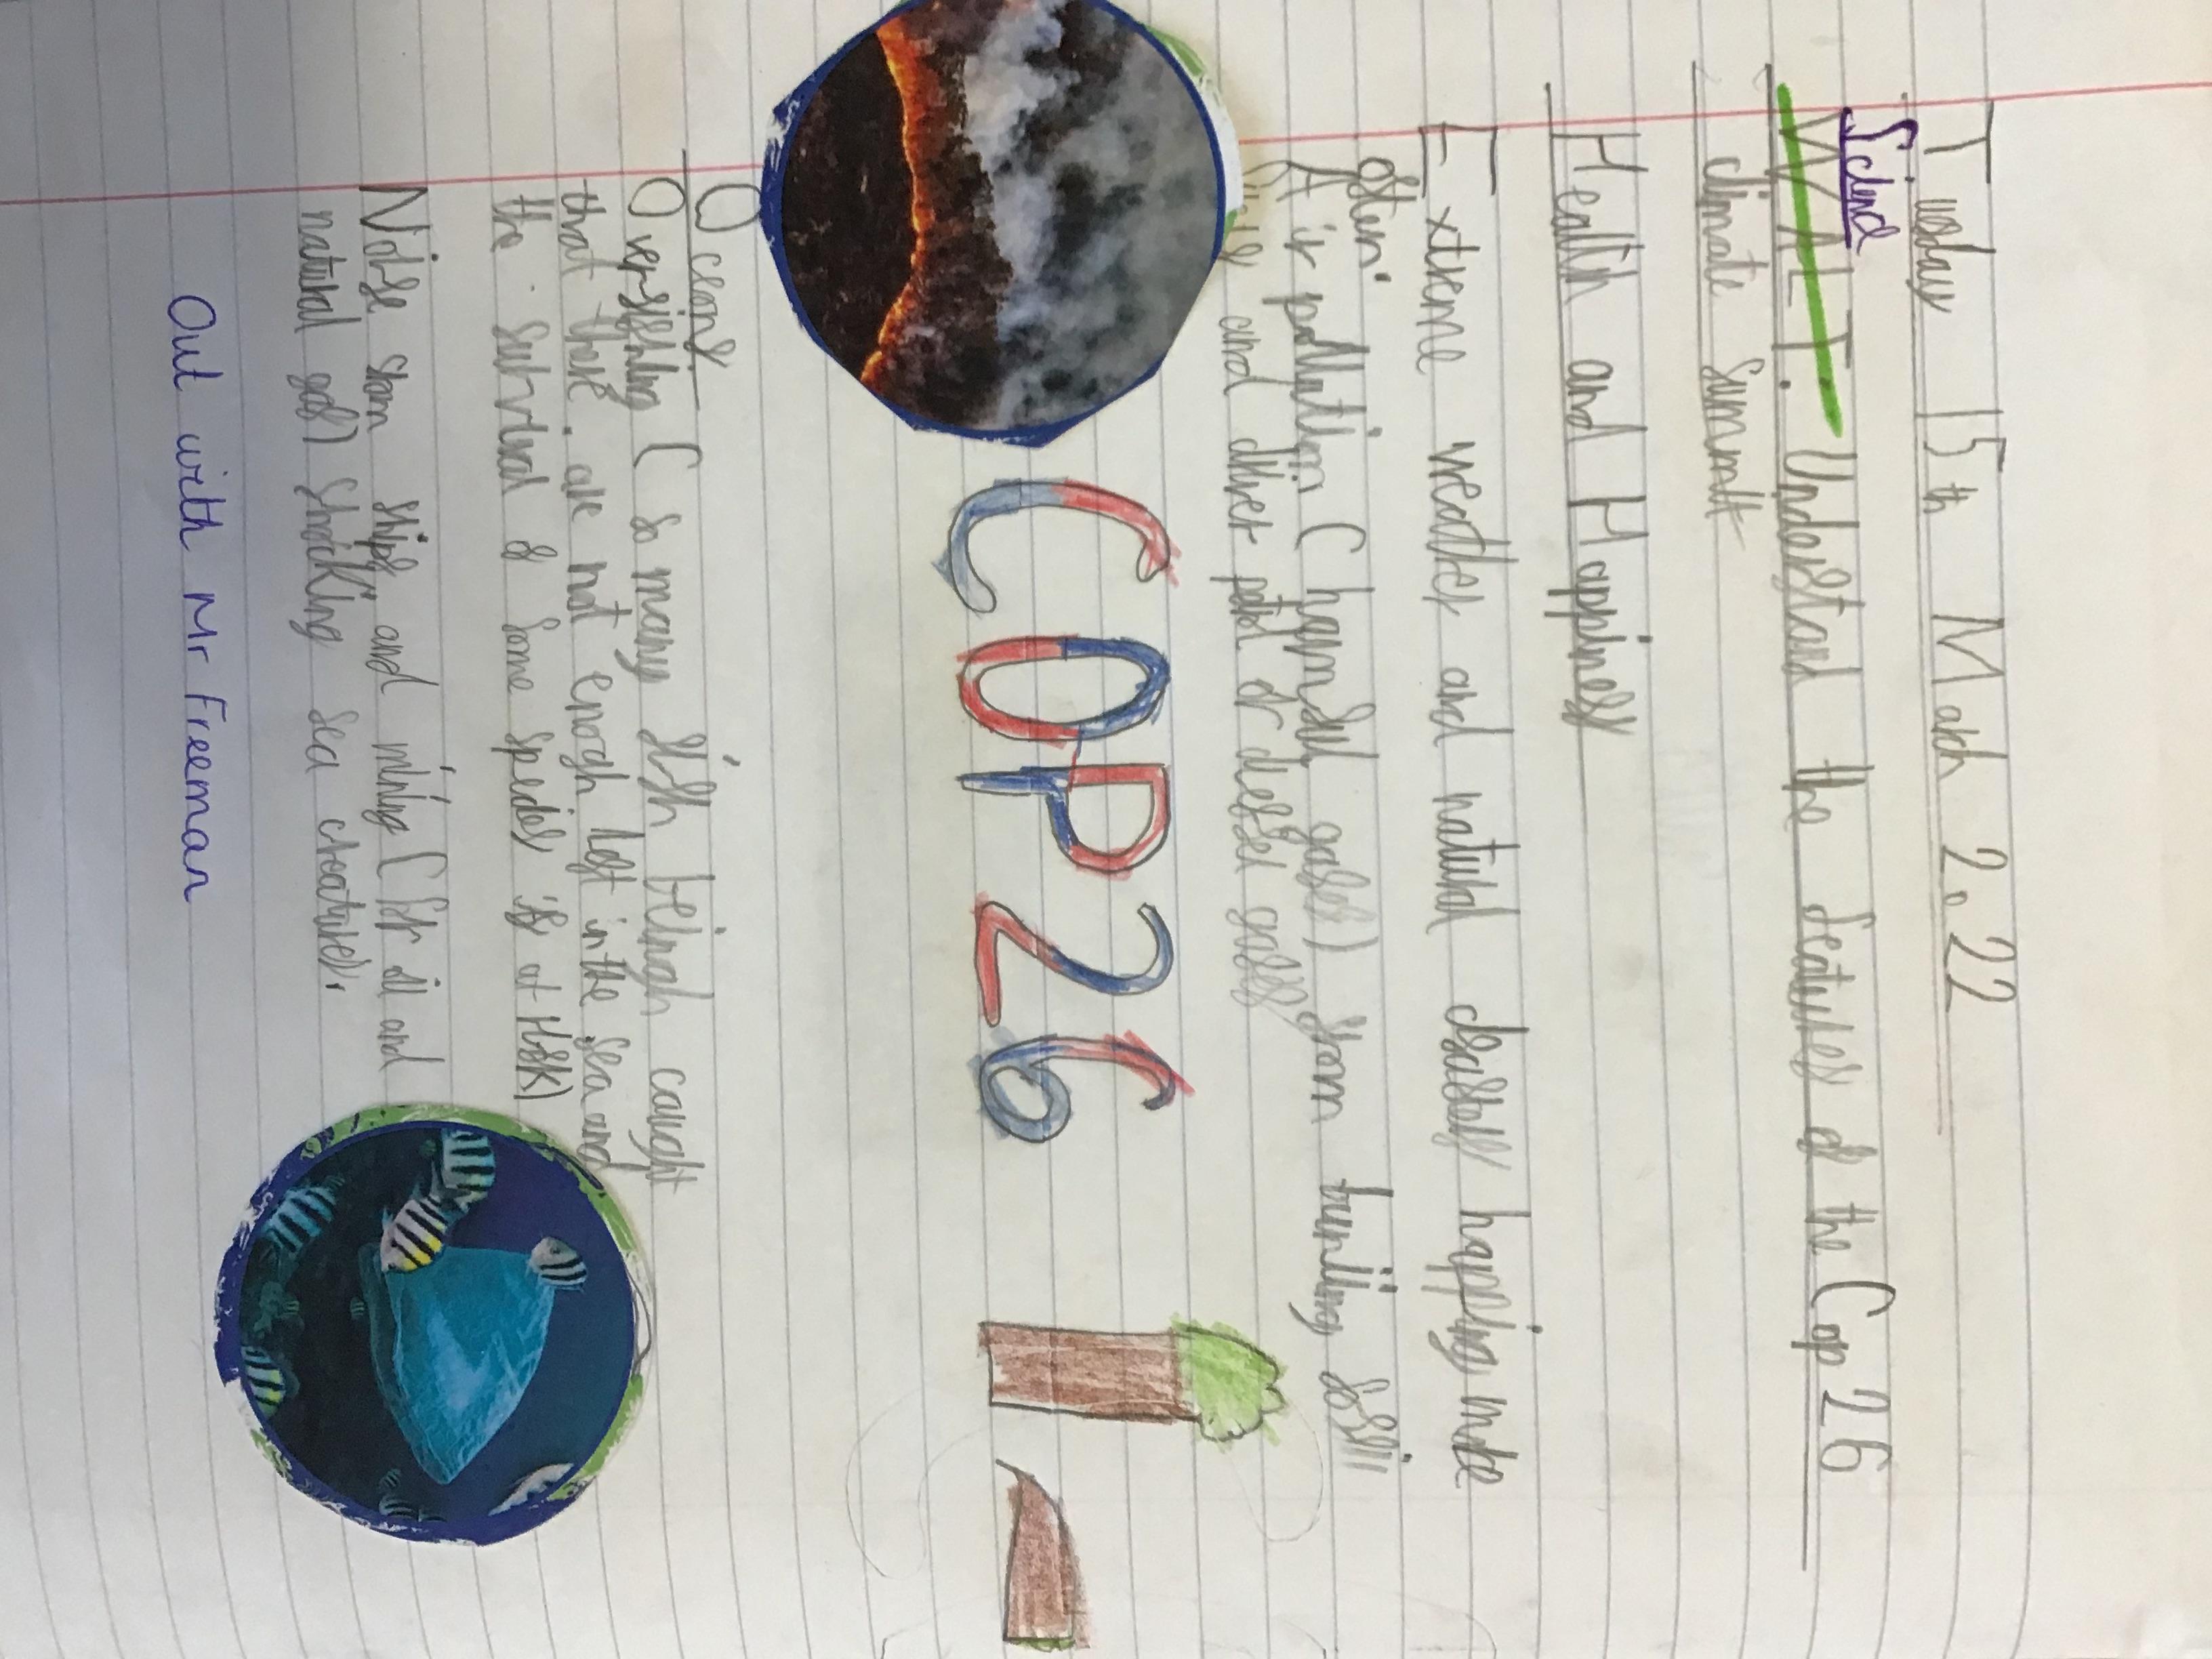 Tuesday 15th March 2022
Scienc
W.A.L.T. Understand the features of the Cop 26
climate summit
Health and Happiness
Extreme weather and natural disasters happing more
often.
Air pollution (harmful gases) from burning fossil
and other petrol or diesel gasses
COP26
Oceans
Over-fishing (so many fish beingh caught
that there are not enogh left in the sea and
the survival of some species is at risk)
Noise from ships and mining (for oil and
natural gas) shocking sea creatures.
Out with Mr Freeman